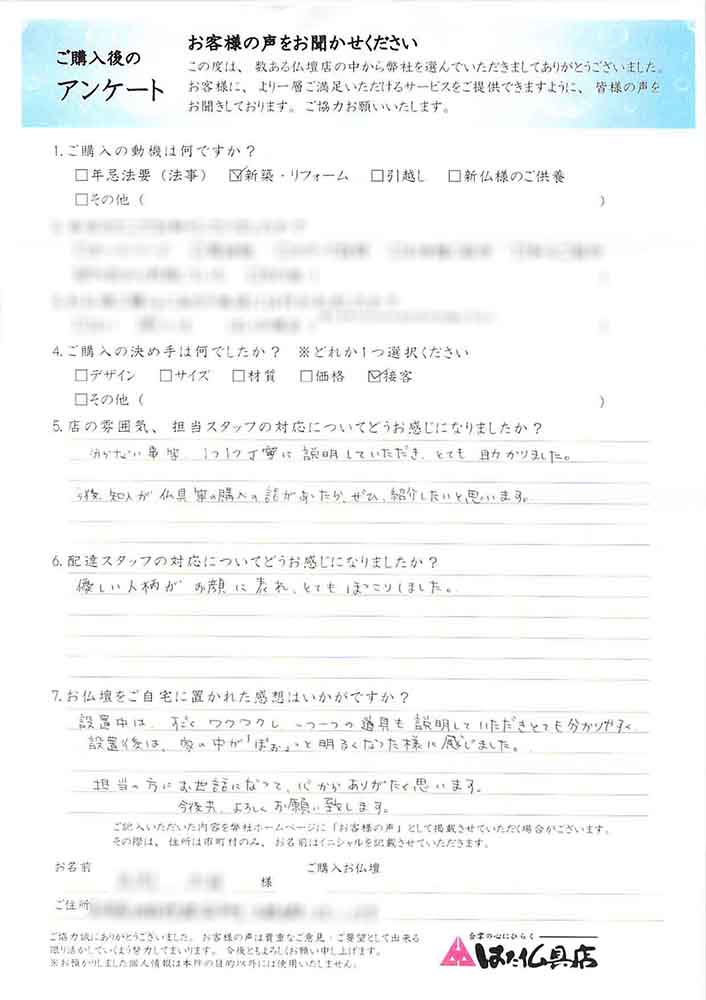 ご購入後の
アンケート
お客様の声をお聞かせください
この度は、数ある仏壇店の中から弊社を選んでいただきましてありがとうございました。
お客様に、より一層ご満足いただけるサービスをご提供できますように、皆様の声を
お聞きしております。ご協力お願いいたします。
1.ご購入の動機は何ですか?
□年忌法要(法事) ☑新築・リフォーム □引越し □新仏様のご供養
□その他( )
4.ご購入の決め手は何でしたか? ※どれか1つ選択ください
□デザイン □サイズ □材質 □価格 ☑接客
□その他( )
5.店の雰囲気、担当スタッフの対応についてどうお感じになりましたか?
分からない事等、1つ1つ丁寧に説明していただき、とても助かりました。
今後、知人が仏具等の購入の話があったら、ぜひ、紹介したいと思います。
6.配達スタッフの対応についてどうお感じになりましたか?
優しい人柄がお顔に表れ、とてもほっこりしました。
7.お仏壇をご自宅に置かれた感想はいかがですか?
設置中は、ワクワクし、一つ一つの道具も説明していただきとても分かりやすく
設置後は、家の中が「ぽぉ」っと明るくなった様に感じました。
担当の方にお世話になって、心からありがたく思います。
今後共、よろしくお願い致します。
ご記入いただいた内容を弊社ホームページに「お客様の声」として掲載させていただく場合がございます。
その際は、住所は市町村のみ、お名前はイニシャルを記載させていただきます。
お名前 様 ご購入お仏壇
ご住所
ご協力誠にありがとうございました。お客様の声は貴重なご意見・ご要望として出来る
限り活かしていくよう努力してまいります。今後ともよろしくお願い申し上げます。
※お預かりしました個人情報は本件の目的以外には使用いたしません。
合掌の心にひらく
はた仏具店